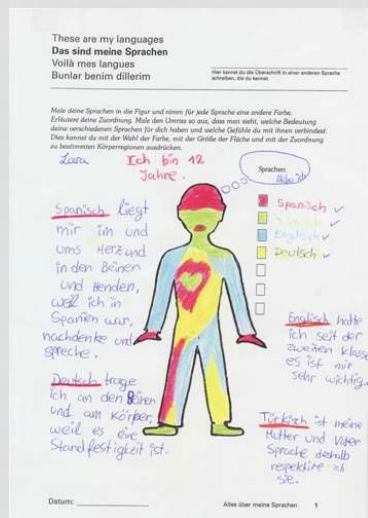 These are my languages
Das sind meine Sprachen
Voilà mes langues
Bunlar benim dillerim
Hier kannst du die Überschrift in einer anderen Sprache
schreiben, die du kennst.
Male deine Sprachen in die Figur und nimm für jede Sprache eine andere Farbe.
Erläutere deine Zuordnung. Male den Umriss so aus, dass man sieht, welche Bedeutung
deine verschiedenen Sprachen für dich haben und welche Gefühle du mit ihnen verbindest.
Dies kannst du mit der Wahl der Farbe, mit der Größe der Fläche und mit der Zuordnung
zu bestimmten Körperregionen ausdrücken.
Lara
Ich bin 12
Jahre.
Sprachen:
Spanisch
Türkisch
Englisch
Deutsch
Spanisch liegt
mir im und
ums Herz und
in den Beinen
und Henden,
weil ich in
Spanien war,
nachdenke und
spreche.
Deutsch trage
ich an den Beinen
und am Körper,
weil es eine
Standfestigkeit ist.
Englisch hatte
ich seit der
zweiten Klasse
es ist mir
sehr wichtig.
Türkisch ist meine
Mutter und Vater
Sprache deshalb
respektire ich
sie.
Datum:
Alles über meine Sprachen 1